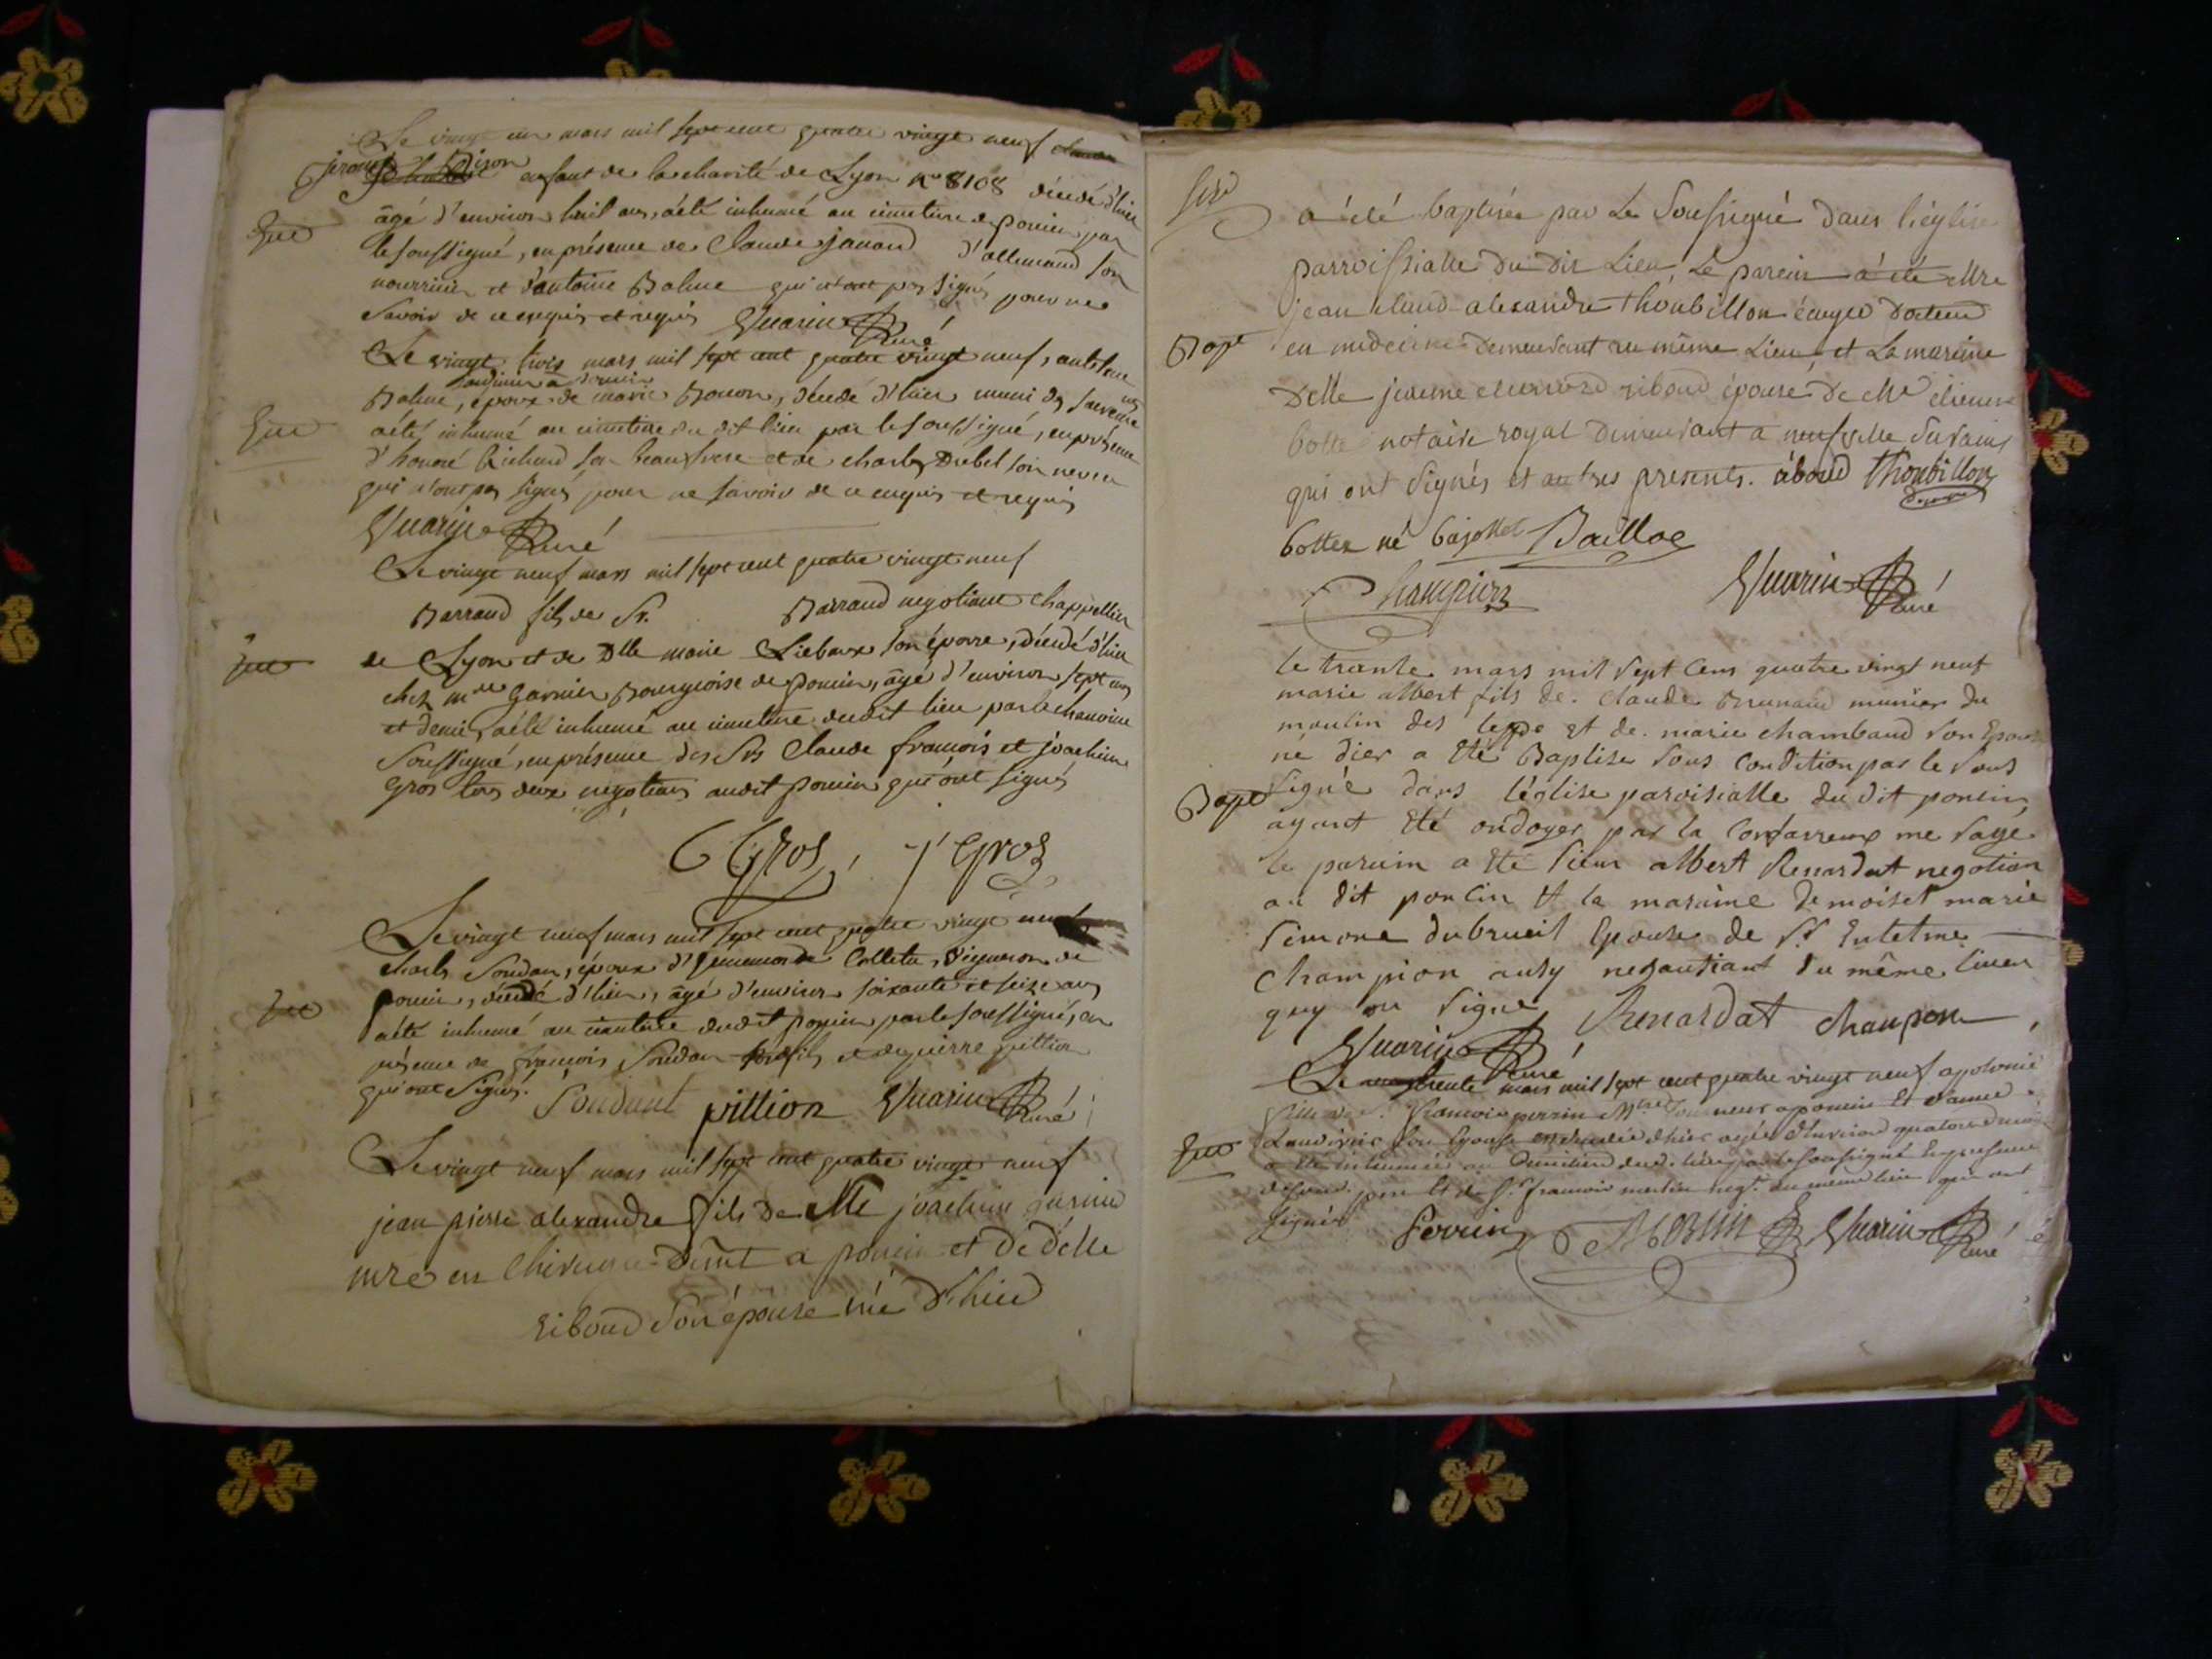 Le vingt un mars mil sept cent quatre vingt neuf
Dizon enfant de la charité de Lyon no 8108 décédé d'hier
Sep
âgé d'environ huit ans, a été inhumé au cimetiere de poncin par
le soussigné, en présence de Claude janand d'allemand son
nourricier et d'antoine Balme qui n'ont pas signés pour ne
savoir de ce enquis et requis Guarin Curé
Le vingt trois mars mil sept cent quatre vingt neuf,
Balme, époux de marie décédé d'hier muni des
a été inhumé au cimetiere du dit lieu par le soussigné, en présence
d'honoré Richard son beaufrere et de charles Drebet son neveu
qui n'ont pas signés pour ne savoir de ce enquis et requis
Guarin Curé
Le vingt neuf mars mil sept cent quatre vingt neuf
Barraud fils de Sr. Barraud negotiant chappellier
de Lyon et de Dlle marie son épouse, décédé d'hier
chez mde Garnier Bourgeoise de poncin, âgé d'environ sept ans
et demi, a été inhumé au cimetiere dudit lieu par le chanoine
soussigné, en présence des Srs Claude francois et joachim
gros tous deux négotians audit poncin qui ont signés
C Gros, j Gros
Le vingt neuf mars mil sept cent quatre vingt neuf
charles Soudan, époux d' Colleta, vigneron de
poncin, décédé d'hier, âgé d'environ soixante et seize ans
a été inhumé au cimetiere dudit poncin par le soussigné, en
présence de francois Soudan fils et de pierre pittion
qui ont signés. Soudant pittion Guarin Curé
Le vingt neuf mars mil sept cent quatre vingt neuf
jean pierre alexandre fils de Me joachim
mre en Chirurgie a poncin et de delle
riboud son épouse né d'hier
a été baptisée par Le Soussigné dans l'église
parroissialle du dit Lieu, Le parein a été Mre
jean claud alexandre thoubillon écuyer docteur
Bapt
en medecine demeurant au même Lieu, et La mareine
Delle jeanne riboud épouse de Me étienne
botte notaire royal demeurant a neufville surains
qui ont signés et autres presents. áboud thoubillon
bottex né bajollet Baillac
Champion Guarin Curé
le trante mars mil sept cens quatre vingt neuf
marie albert fils de. claude Brunand munier du
moulin des et de. marie chambaud son Epouse
né dier a été Baptisé sous condition par le sous
Bapt
signé dans l'église paroisialle du dit poncin
ayant été ondoyer par la me sage
le parain a été sieur albert Renardat negotian
au dit poncin et la maraine demoiset marie
simone dubrueil Epouse de Sr Entelme
champion ausy negautiant du même lieux
quy on signe Renardat champion
Guarin Curé
Le trente mars mil sept cent quatre vingt neuf apolonie
fille de. francois perrin a poncin et d'anne
son Epouse décédée d'hier agée d'environ quatorze mois
a été inhumée au Cimetiere dud. lieu par le soussigné En presence
père et de Sr. francois morlin negt. du meme lieu qui ont
signés Perrin Morlin Guarin Curé